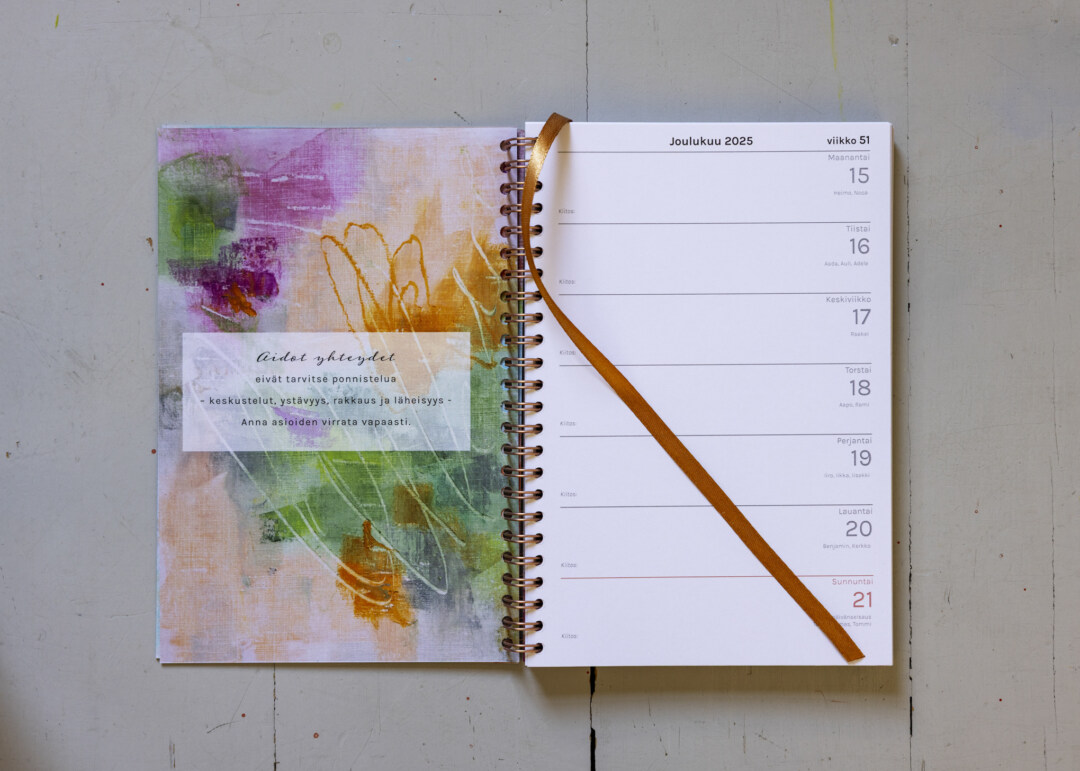 Aidot yhteydet
eivät tarvitse ponnistelua
- keskustelut, ystävyys, rakkaus ja läheisyys -
Anna asioiden virrata vapaasti.
Joulukuu 2025
viikko 51
Maanantai
15
Kiitos:
Tiistai
16
Kiitos:
Keskiviikko
17
Raakel
Kiitos:
Torstai
18
Aapo, Rami
Kiitos:
Perjantai
19
Iiro, Iikka, Iisakki
Kiitos:
Lauantai
20
Benjamin, Kerkko
Kiitos:
Sunnuntai
21
Tommi
Kiitos: